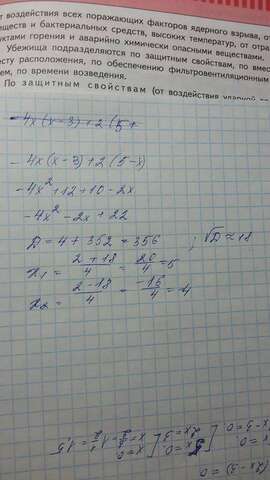 т воздействия всех поражающих факторов ядерного взрыва, от
еществ и бактериальных средств, высоких температур, от отра
уктами горения и аварийно химически опасными веществами.
Убежища подразделяются по защитным свойствам, по вмес
есту расположения, по обеспечению фильтровентиляционным
ем, по времени возведения.
По защитным свойствам (от воздействия ударной
-4x(x-3)+2(5+
-4x(x-3)+2(5-x)
-4x²+12+10-2x
-4x²-2x+22
D=4+352=356 ; √D≈18
x₁= 2+18/4 = 20/4 =5
x₂= 2-18/4 = -16/4 =-4
(2x-3)=0
x=0
x-3=0
x=0
2x=3
x=0